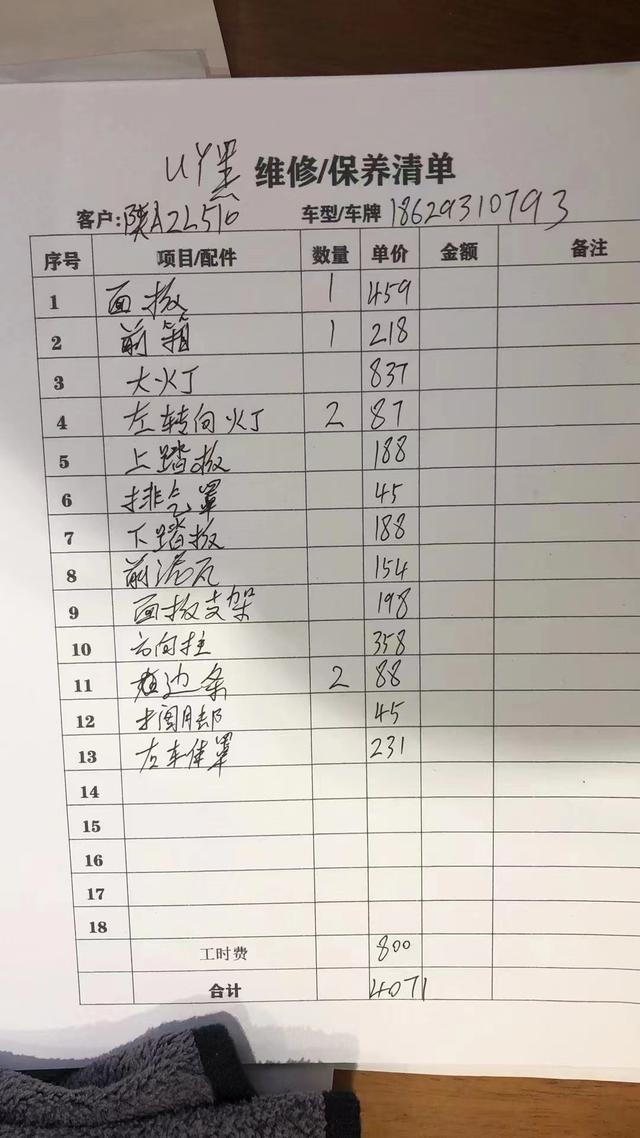 UY黑 维修/保养清单
客户: 陕A2L510 车型/车牌 18629310793
序号 项目/配件 数量 单价 金额 备注
1 面板 1 459
2 前箱 1 218
3 大火丁 837
4 左转向火丁 2 87
5 上踏板 188
6 排气罩 45
7 下踏板 188
8 前泥瓦 154
9 面板支架 198
10 方向柱 358
11 边条 2 88
12 45
13 左车体罩 231
14
15
16
17
18
工时费 800
合计 4071